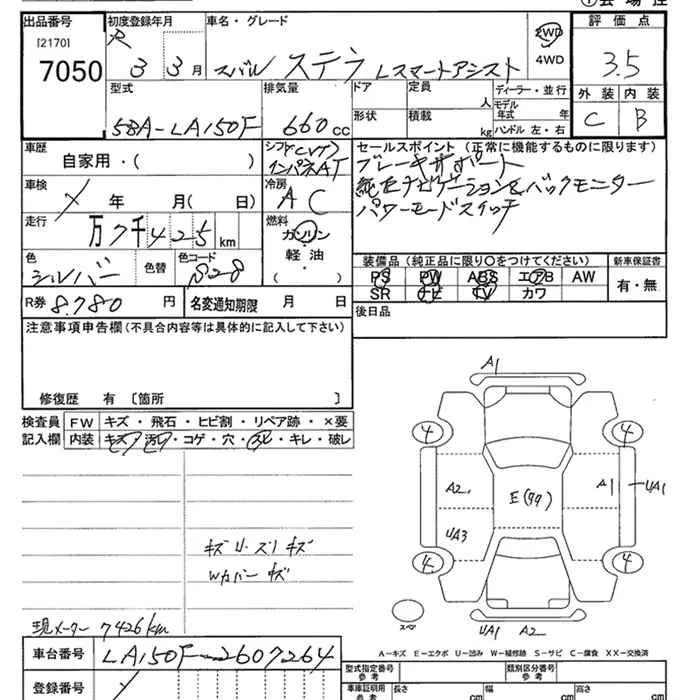 出品番号 初度登録年月 車名・グレード 評価点
[2170] R 3 3月 スバル ステラ Lスマートアシスト 2WD 4WD 3.5
7050
型式 排気量 ドア 定員 ディーラー・並行 外装 内装
5BA-LA150F 660cc 形状 積載 人 モデル年式 年 kg ハンドル 左・右 C B
車歴 シフト(CVT) セールスポイント(正常に機能するものに限ります)
自家用・( ) インパネAT ブレーキサポート
車検 年 月( 日) 冷房 AC 純正ナビゲーション&バックモニター
走行 万7千425km 燃料 パワーモードスイッチ
ガソリン
軽油・
( )
色 色替 色コード 装備品(純正品に限り○をつけてください) 新車保証書
シルバー PS PW ABS エアB AW 有・無
R券 8.780円 名変通知期限 月 日 SR ナビ TV カワ
後日品
注意事項申告欄(不具合内容等は具体的に記入して下さい)
修復歴 有〔箇所 〕
検査員 FW キズ・飛石・ヒビ割・リペア跡・×要
記入欄 内装 キズ・汚れ・コゲ・穴・スレ・キレ・破レ
A1
4 4
A2 E(77) A1 UA1
UA3
4 4
キズU・ズリキズ
Wカバーキズ
スペア UA1 A2
現メーター 7426km
A-キズ E-エクボ U-凹み W-補修跡 S-サビ C-腐食 XX-交換済
車台番号 LA150F-2607264
型式指定番号 参考 類別区分番号 参考
登録番号
車庫証明用 参考 長さ cm 幅 cm 高さ cm